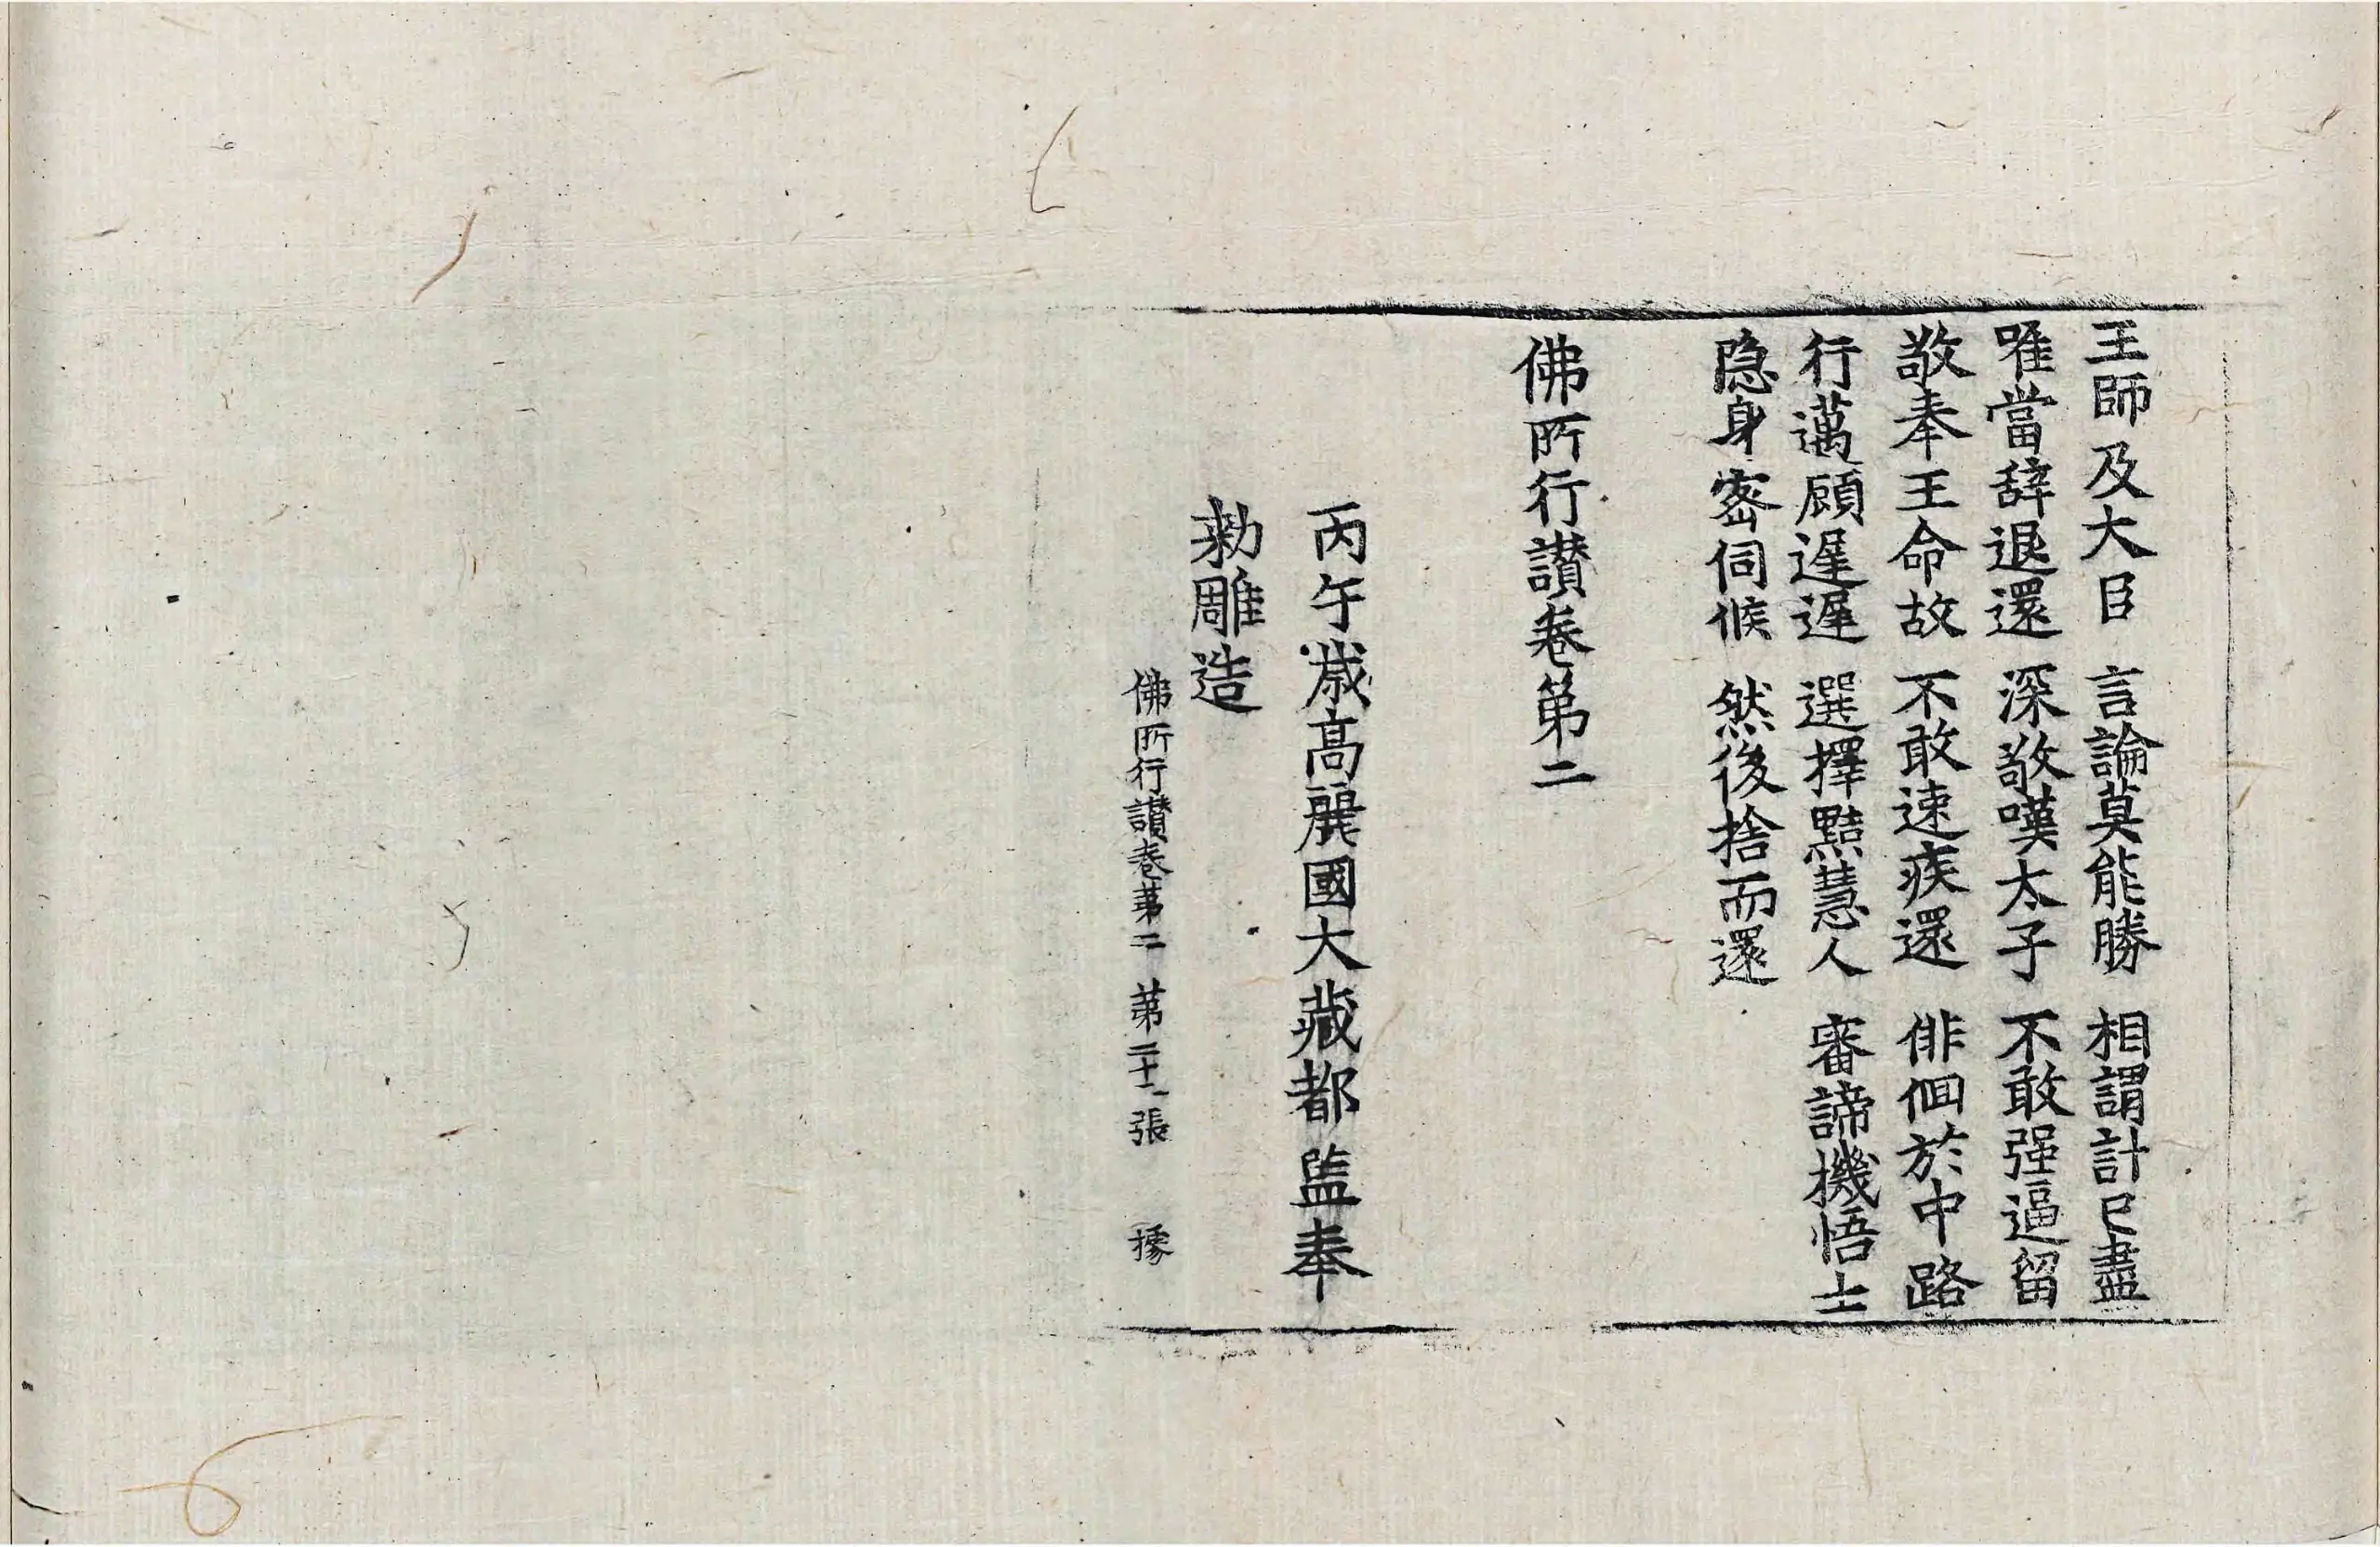 王師及大臣 言論莫能勝 相謂計已盡
唯當辞退還 深敬嘆太子 不敢强逼留
敬奉王命故 不敢速疾還 俳佪於中路
行邁顧遲遲 選擇黠慧人 審諦機悟士
隐身密伺候 然後捨而還
佛所行讃卷第二
丙午歳高麗國大藏都監奉
勑雕造
佛所行讃卷第二 第二十二張 據